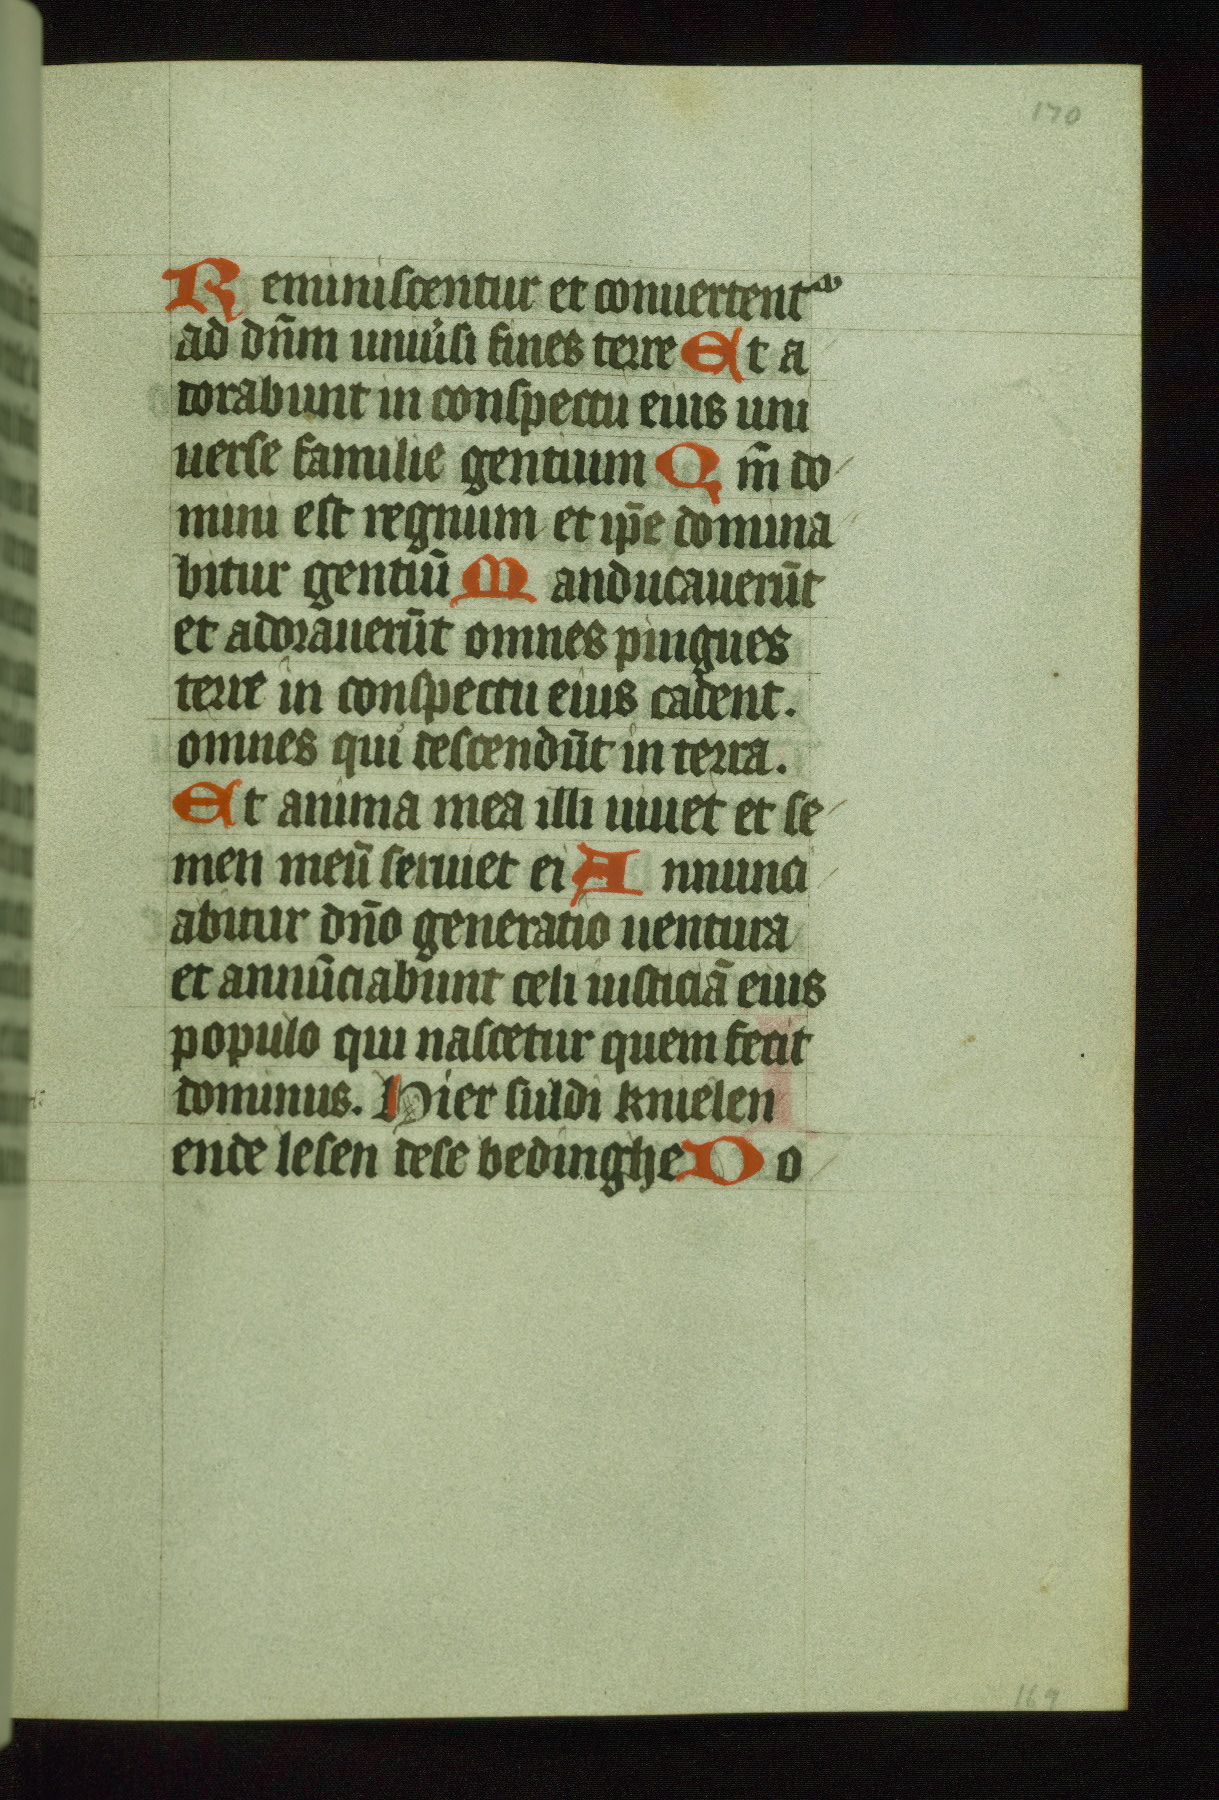 170
Reminiscentur et conuertent᷑
ad dn̄m uniu͛si fines terre Et a
dorabunt in conspectu eius uni
uerse familie gentium Qm̄ do
mini est regnum et ip̄e domina
bitur gentiū Manducauerūt
et adorauerūt omnes pingues
terre in conspectu eius cadent.
omnes qui descendūt in terra.
Et anima mea illi uiuet et se
men meū seruiet ei Annunci
abitur dn̄o generatio uentura
et annūciabunt celi iusticiā eius
populo qui nascetur quem fecit
dominus. Hier suldi knielen
ende lesen dese bedinghe Do
169